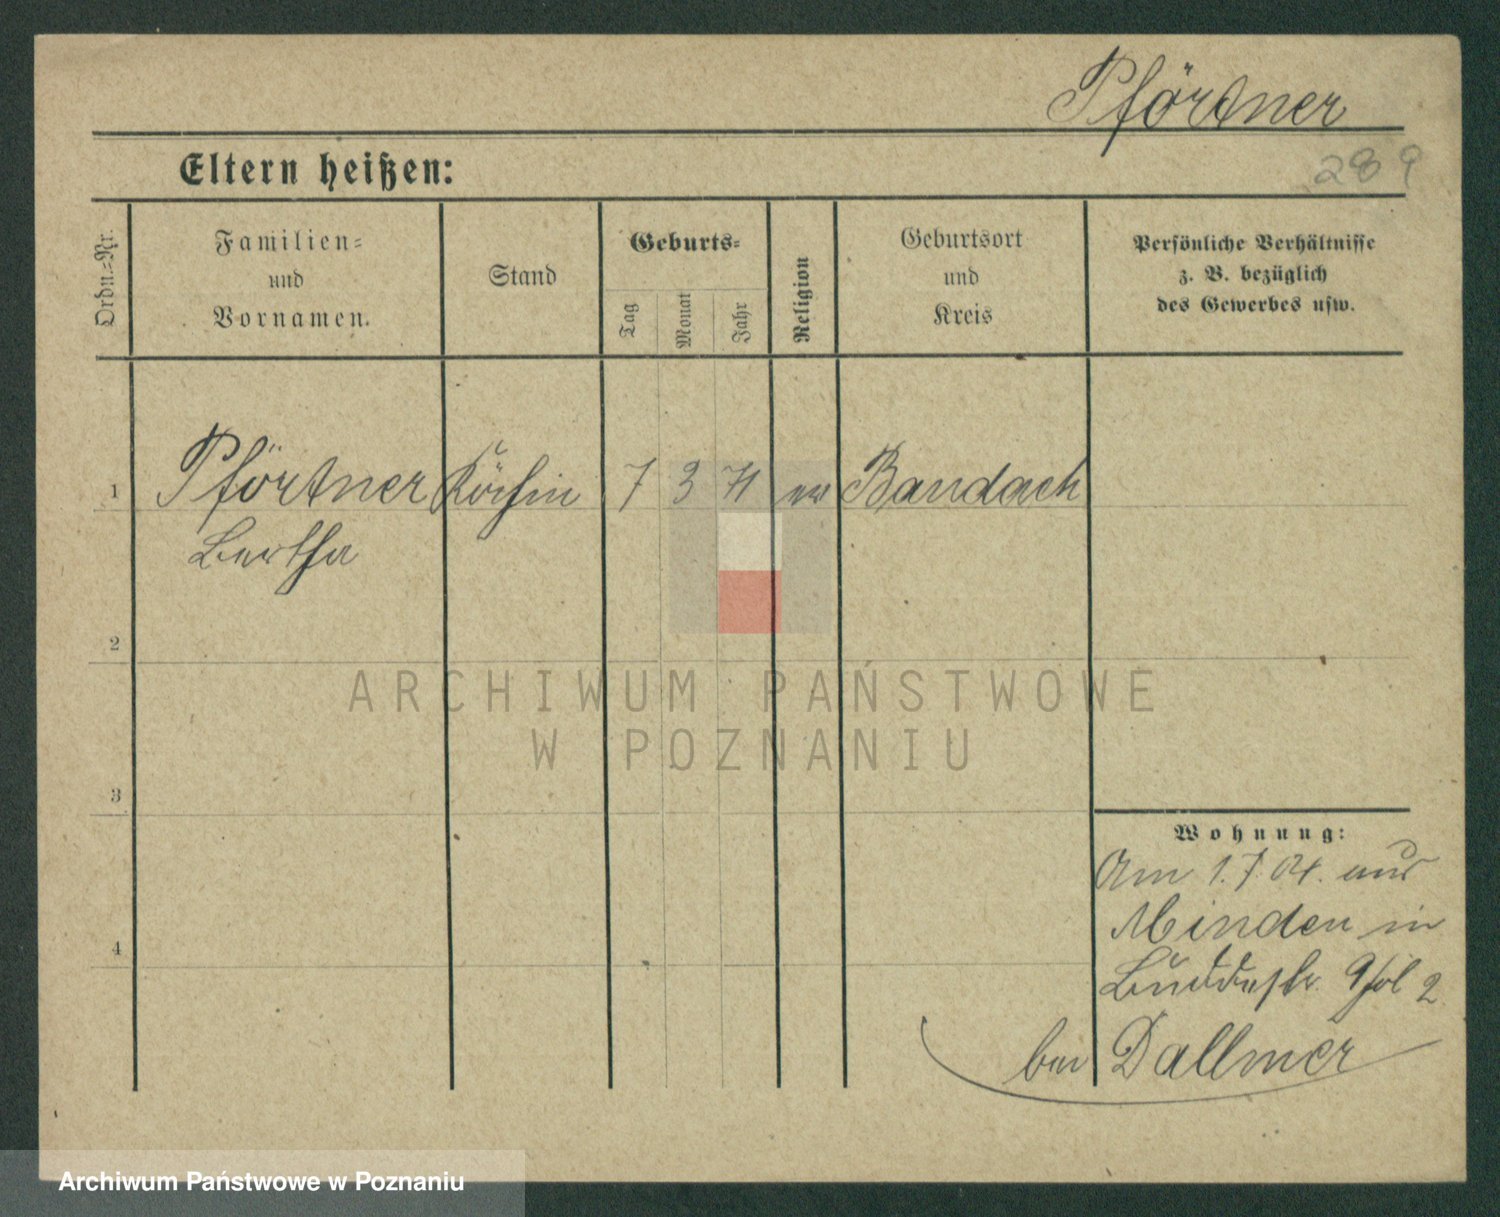 Pförtner
289
Eltern heißen:
Ordn.=Nr.
Familien=
und
Vornamen.
Stand
Geburts=
Tag
Monat
Jahr
Religion
Geburtsort
und
Kreis
Persönliche Verhältnisse
z. B. bezüglich
des Gewerbes usw.
1 Pförtner Köchin 7 3 71 ev Bandach
Bertha
2
ARCHIWUM PAŃSTWOWE
W POZNANIU
3
Wohnung:
Am 1.7.04. aus
Minden in
4
Buddestr. 2
bei Dallmer
Archiwum Państwowe w Poznaniu